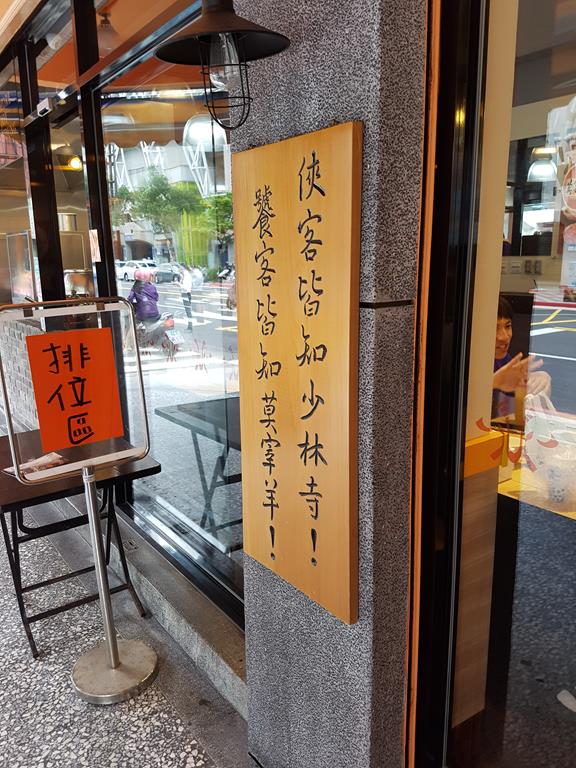 俠客皆知少林寺！
饕客皆知莫宰羊！
排位區